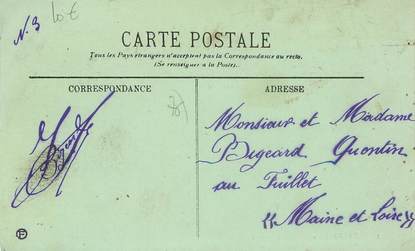 N. 3
10 €
CARTE POSTALE
Tous les Pays étrangers n'acceptent pas la Correspondance au recto.
(Se renseigner à la Poste).
CORRESPONDANCE
ADRESSE
Monsieur et Madame
Bigeard Quentin
au Fuillet
Maine et Loire